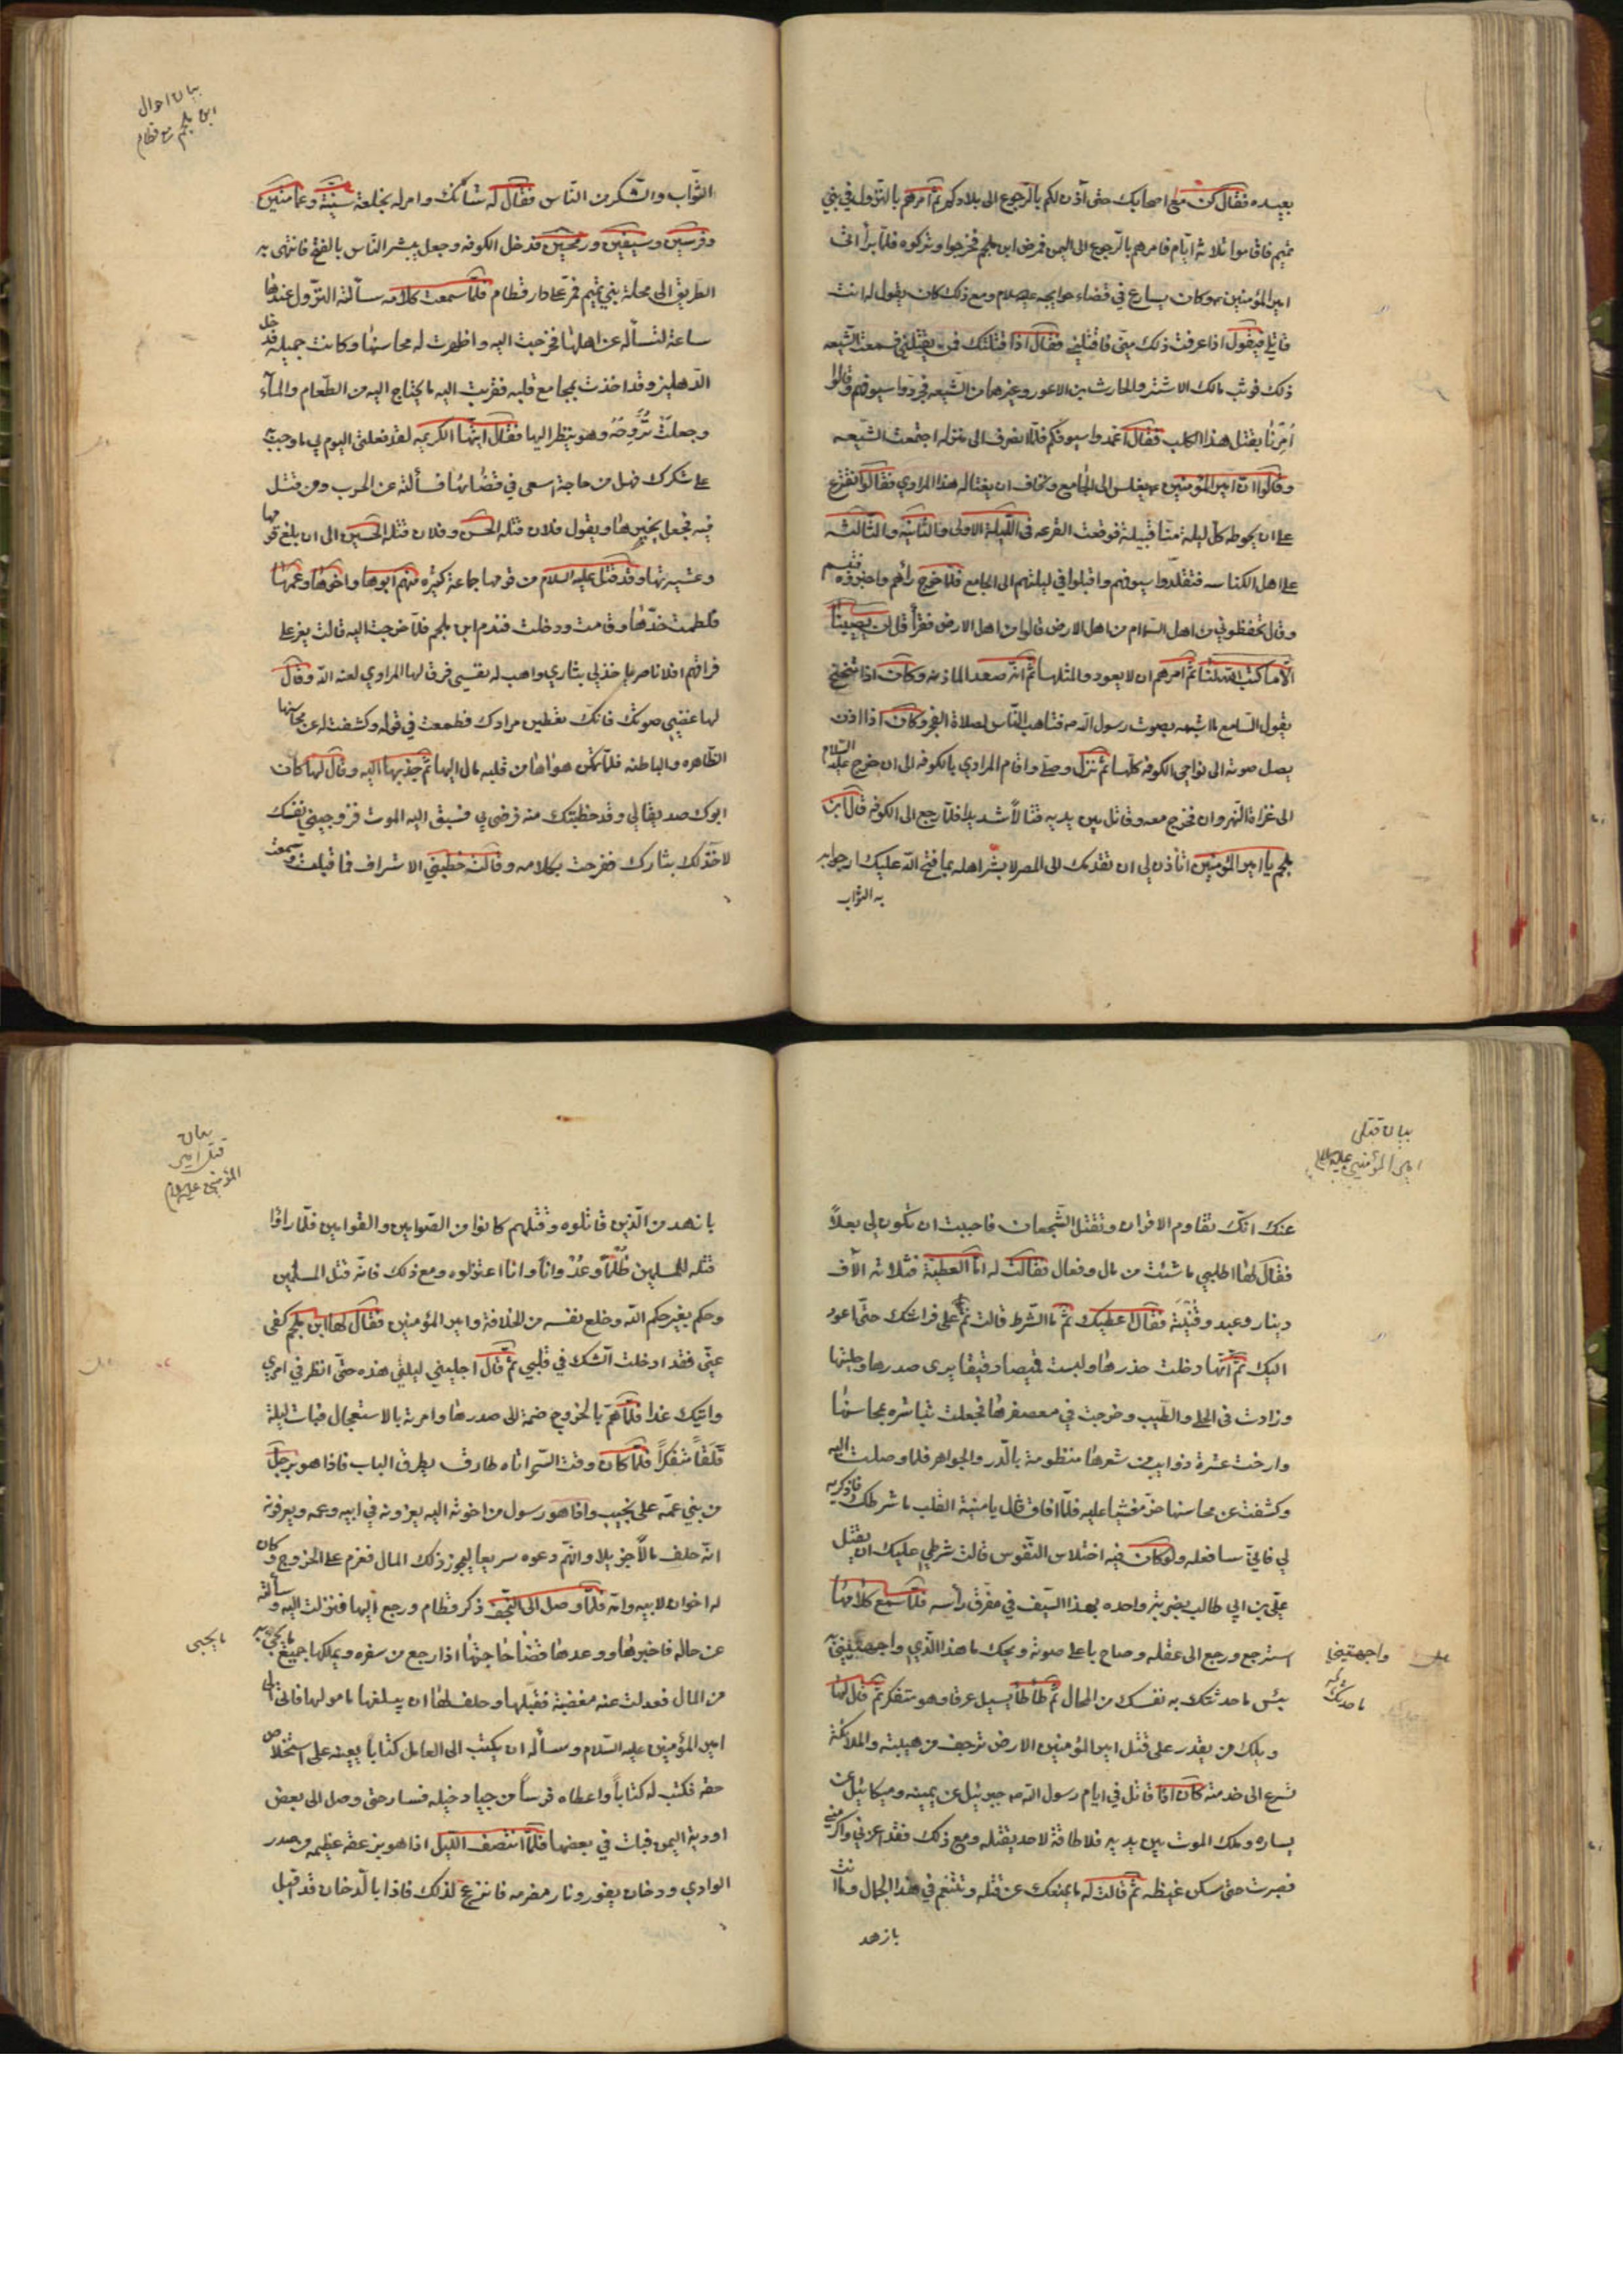 بعيده فقال كن مع اصحابك حتى آذن لكم بالرجوع الى بلادكم ثم امرهم بالنزول في بني
تميم فاقاموا ثلاثة ايام فامرهم بالرجوع الى اليمن فمرض ابن ملجم فخرجوا وتركوه فلما برأ اتى
امير المؤمنين وكان يسارع في قضاء حوايجه عليه السلام ومع ذلك كان يقول له انت
قاتلي فيقول اذا عرفت ذلك منّي فاقتلني فقال اذا قتلتك فمن يقتلني فسمعت الشيعه
ذلك فوثب مالك الاشتر والحارث بن الاعور وغيرهما من الشيعه فجردوا سيوفهم وقالوا
أمرنا بقتل هذا الكلب فقال اغمدوا سيوفكم فلما انصرف الى منزله اجتمعت الشيعه
وقالوا ان امير المؤمنين يغلس الى الجامع ونخاف ان يغتاله هذا المرادي فقالوا نقترع
على ان يحوطه كل ليلة منا قبيلة فوقعت القرعه في الليلة الاولى والثانية والثالثه
على اهل الكناسه فتقلدوا سيوفهم واقبلوا في ليلتهم الى الجامع فلما خرج رآهم واخبروه فتبسم
وقال تحفظوني من اهل السماء ام من اهل الارض قالوا من اهل الارض فقرأ قل لن يصيبنا
الا ما كتب الله لنا ثم امرهم ان لا يعودوا لمثلها ثم انه صعد الماذنه وكان اذا تنحنح
يقول السامع ما اشبهه بصوت رسول الله ص فتاهب الناس لصلاة الفجر وكان اذا اذن
يصل صوته الى نواحي الكوفه كلها ثم نزل وصلى واقام المرادي بالكوفه الى ان خرج عليه السلام
الى غزاة النهروان فخرج معه وقاتل بين يديه قتالاً شديدا فلما رجع الى الكوفه قال ابن
ملجم يا امير المؤمنين اتاذن لي ان تقدمك الى المصر لابشر اهله بما فتح الله عليك ارجوا به
به الثواب
بيان احوال
ابن ملجم مع قطام
الثواب والشكر من الناس فقال له شانك وامر له بخلعة سنية وعمامتين
وفرسين وسيفين ورمحين فدخل الكوفه وجعل يبشر الناس بالفتح فانتهى به
الطريق الى محلة بني تميم فمر على دار قطام فلما سمعت كلامه سألته النزول عندها
ساعة لتسأله عن اهلها فخرجت اليه واظهرت له محاسنها وكانت جميله فدخل
الدهليز وقد اخذت بمجامع قلبه فقربت اليه ما يحتاج اليه من الطعام والمآء
وجعلت تروحه وهو ينظر اليها فقال ايتها الكريمه لقد فعلتي اليوم بي ما وجب
على شكرك فهل من حاجة اسعى في قضائها فسألته عن الحرب ومن قتل
فيه فجعل يخبرها ويقول فلان قتله الحسن وفلان قتله الحسين الى ان بلغ قومها
وعشيرتها وقد قتل عليه السلام من قومها جماعة كثيره منهم ابوها واخوها وعمها
فلطمت خدها وقامت ودخلت فندم ابن ملجم فلما خرجت اليه قالت يعز علي
فراقهم افلا ناصر لي خذ لي بثاري واهب له نفسي فرق لها المرادي لعنه الله وقال
لها غضي صوتك فانك تعطين مرادك فطمعت في قوله وكشفت له عن محاسنها
الظاهره والباطنه فلما تمكن هواها من قلبه مال اليها ثم جذبها اليه وقال لها كان
ابوك صديقا لي وقد خطبتك منه فرضي بي فسبق اليه الموت فزوجيني نفسك
لآخذ لك بثارك ففرحت بكلامه وقالت خطبني الاشراف فما قبلت وسمعت
بيان قتل
امير المؤمنين عليه السلام
عنك انك تقاوم الاقران وتقتل الشجعان فاحببت ان تكون لي بعلاً
فقال لها اطلبي ما شئت من مال وفعال فقالت له اما العطية فثلاثه آلاف
دينار وعبد وقينة فقال اعطيك ثم ما الشرط قالت نم على فراشك حتى اعود
اليك ثم انها دخلت خدرها ولبست قميصا رقيقا يرى صدرها وحليها
وزادت في الحلي والطيب وخرجت في معصفرها فجعلت تباشره بمحاسنها
وارخت عشرة ذوايب من شعرها منظومة بالدر والجواهر فلما وصلت اليه
وكشفت عن محاسنها خر مغشيا عليه فلما افاق قال يا منية القلب ما شرطك فاذكريه
لي فاني سافعله ولو كان فيه اختلاس النفوس قالت شرطي عليك ان تقتل
علي بن ابي طالب بضربة واحده بهذا السيف في مفرق رأسه فلما سمع كلامها
استرجع ورجع الى عقله وصاح باعلى صوته ويحك ما هذا الذي واجهتيني
بئس ما حدثتك به نفسك من المحال ثم طأطأ يسيل عرقا وهو متفكر ثم قال لها
ويلك من يقدر على قتل امير المؤمنين الارض ترجف من هيبته والملائكة
تسرع الى خدمته كان اذا قاتل في ايام رسول الله ص جبرئيل عن يمينه وميكائيل عن
يساره وملك الموت بين يديه فلا طاقة لاحد بقتله ومع ذلك فقد اعزني واكرمني
فصبرت حتى سكن غيظه ثم قالت له ما يمنعك عن قتله وتتنعم في هذا الجمال وما انت
بازهد
واجهتيني
بيان
قتل امير
المؤمنين عليه السلام
بازهد من الذين قاتلوه وقتلهم كانوا من الصوامين والقوامين فلما راوا
قتله للمسلمين ظلماً وعدواناً وانا اعتزلوه ومع ذلك فانه قتل المسلمين
وحكم بغير حكم الله وخلع نفسه من الخلافة وامير المؤمنين فقال لها ابن ملجم كفي
عني فقد ادخلت الشك في قلبي ثم قال اجليني ليلتي هذه حتى انظر في امري
واتيك غدا فلما هم بالخروج ضمته الى صدرها وامرته بالاستعجال فبات ليلة
قلقاً متفكراً فلما كان وقت السحر اتاه طارق يطرق الباب فاذا هو برجل
من بني عمه على نجيب واذا هو رسول من اخوته اليه يعزونه في ابيه وعمه ويعرفونه
انه خلف مالاً جزيلا وانهم دعوه سريعا ليحوز ذلك المال فعزم على الخروج وكان
له اخوان لابيه وانه فلما وصل الى النجف ذكر قطام ورجع اليها فنزلت اليه وسألته
عن حاله فاخبرها ووعدها قضا حاجتها اذا رجع من سفره ويملكها جميع ما يجئ به
من المال فعدلت عنه مغضبة فقبلها وحلف لها ان يبلغها مامولها فاتى الى
امير المؤمنين عليه السلام وسأله ان يكتب الى العامل كتاباً يعينه على استخلاص
حقه فكتب له كتاباً واعطاه فرساً من جياد خيله فسار حتى وصل الى بعض
اودية اليمن فبات في بعضها فلما انتصف الليل اذا هو بزعقه عظيمه وصدر
الوادي ودخان يفور ونار مضرمه فانزعج لذلك فاذا بالدخان قد اقبل